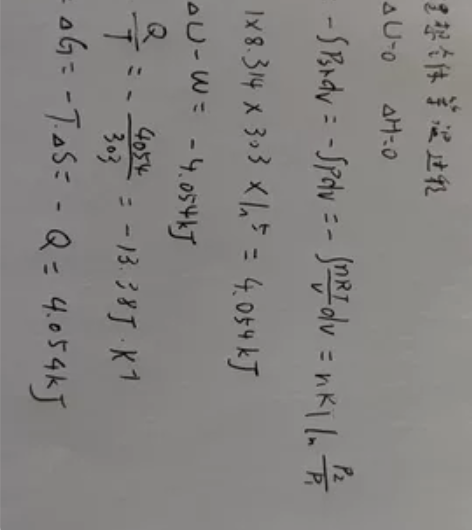 理想气体等温过程
ΔU=0 ΔH=0
-∫P外dV = -∫PdV = -∫nRT/V dV = nRT ln P2/P1
1×8.314×303×ln5 = 4.054kJ
ΔU-W = -4.054kJ
Q/T = -4054/303 = -13.38J·K-1
ΔG = -T·ΔS = -Q = 4.054kJ